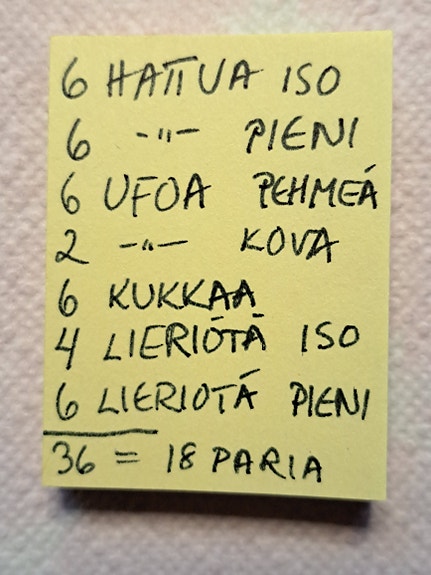 6 HATTUA ISO
6 -"- PIENI
6 UFOA PEHMEÄ
2 -"- KOVA
6 KUKKAA
4 LIERIÖTÄ ISO
6 LIERIOTÄ PIENI
36 = 18 PARIA